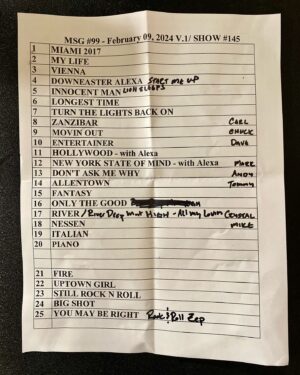 MSG #99 - February 09, 2024 V.1/ SHOW #145
1 MIAMI 2017
2 MY LIFE
3 VIENNA
4 DOWNEASTER ALEXA START ME UP
5 INNOCENT MAN LION SLEEPS
6 LONGEST TIME
7 TURN THE LIGHTS BACK ON
8 ZANZIBAR CARL
9 MOVIN OUT CHUCK
10 ENTERTAINER DAVE
11 HOLLYWOOD - with Alexa
12 NEW YORK STATE OF MIND - with Alexa MARK
13 DON'T ASK ME WHY ANDY
14 ALLENTOWN TOMMY
15 FANTASY
16 ONLY THE GOOD
17 RIVER / River Deep Mnt HIGH - All my Lovin CRYSTAL
18 NESSEN MIKE
19 ITALIAN
20 PIANO
21 FIRE
22 UPTOWN GIRL
23 STILL ROCK N ROLL
24 BIG SHOT
25 YOU MAY BE RIGHT Rock & Roll Zep